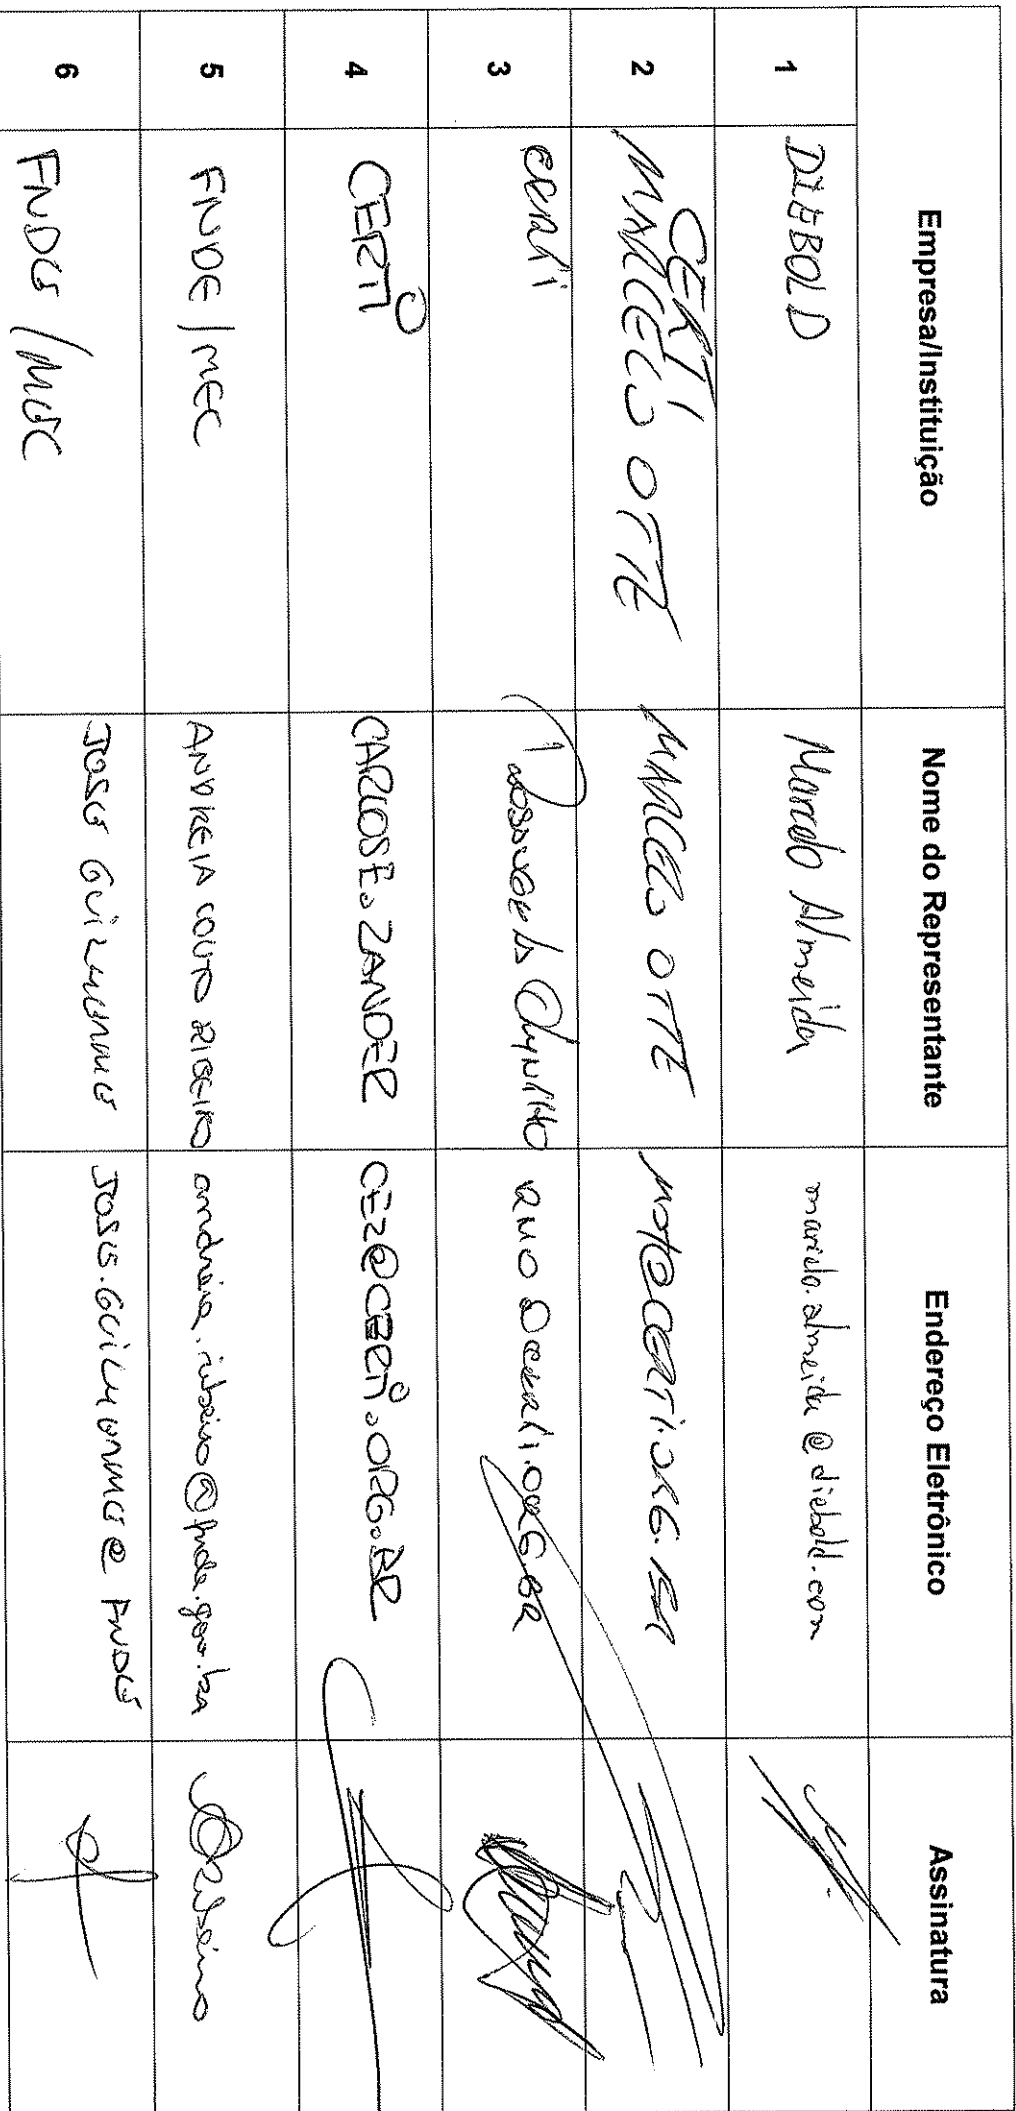 Empresa/Instituição Nome do Representante Endereço Eletrônico Assinatura
1 DIEBOLD Marcelo Almeida marcelo.almeida@diebold.com
2 CERTI MARCELO OTTE MARCELO OTTE MOT@CERTI.ORG.BR
3 CERTI
4 CERTI CARLOS E. ZANDER CEZ@CERTI.ORG.BR
5 FNDE/MEC ANDREIA COUTO RIBEIRO andreia.ribeiro@fnde.gov.br
6 FNDE/MEC JOSE GUILHERME JOSE.GUILHERME@FNDE